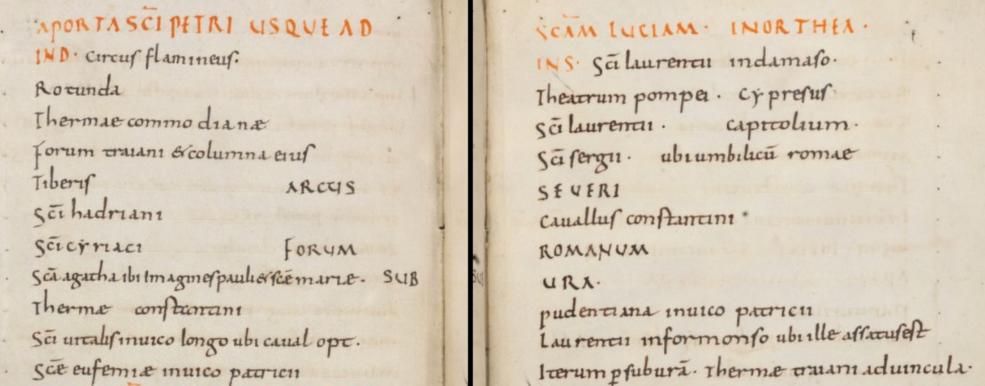 APORTA SC̄I PETRI USQUE AD
IND· Circus flamineus·
Rotunda
Thermae commodianæ
forum traiani & columna eius
Tiberis ARCUS
Sc̄i hadriani
Sc̄i cyriaci FORUM
Sc̄a agatha ibi Imagines pauli & sc̄e mariæ· SUB
Thermæ constantini
Sc̄i vitalis in uico longo ubi caual opt·
Sc̄e eufemiæ in uico patricii
SC̄AM LUCIAM· IN ORTHEA·
INS· Sc̄i laurentii indamaso·
Theatrum pompei· Cypresus
Sc̄i laurentii· capitolium·
Sc̄i sergii· ubi umbilicū romae
SEVERI
Cauallus constantini
ROMANUM
URA·
pudentiana in uico patricii
Laurentii in formonso ubi ille assatus est
Iterum p suburā· Thermæ traiani ad uincula·